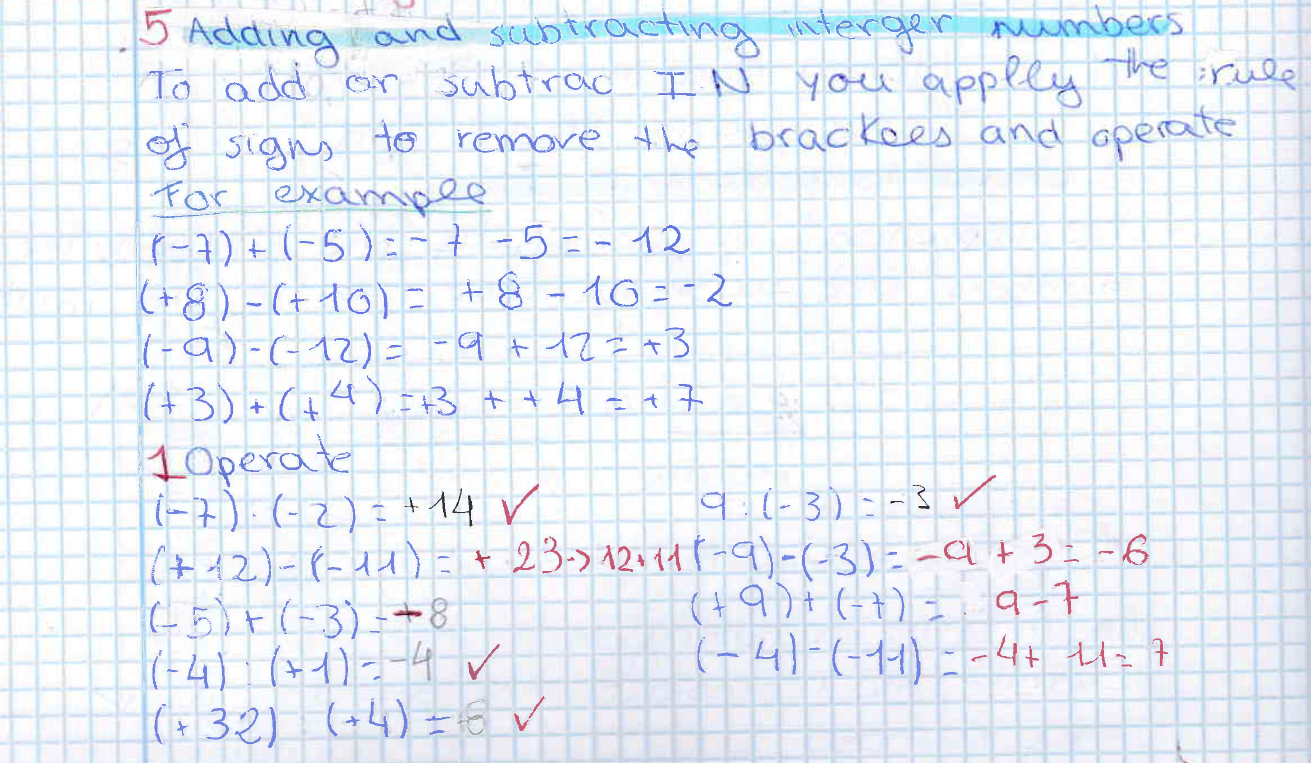 5 Adding and subtracting interger numbers
To add or subtrac IN you applly the rule
of signs to remove the brackees and operate
For example
(-7)+(-5)=-7 -5=- 12
(+8)-(+10)= +8 -10=-2
(-9)-(-12)= -9 + 12=+3
(+3)+(+4)=+3 + +4 = +7
1 Operate
(-7)·(-2)= +14 ✓
9:(-3)= -3 ✓
(+12)-(-11)= + 23→12+11
(-9)-(-3)= -9 + 3= -6
(-5)+(-3)=-8
(+9)+(-7)= 9-7
(-4):(+1)=-4 ✓
(-4)-(-11)=-4+ 11= 7
(+32) (+4)= ✓